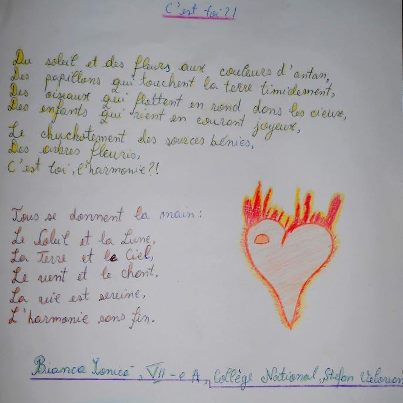 C'est toi?!
Du soleil et des fleurs aux couleurs d'antan,
Des papillons qui touchent la terre timidement,
Des oiseaux qui flottent en rond dans les cieux,
Des enfants qui rient en courant joyeux,
Le chuchotement des sources bénies,
Des arbres fleuris,
C'est toi, l'harmonie?!
Tous se donnent la main:
Le Soleil et la Lune,
La Terre et le Ciel,
Le vent et le chant.
La vie est sereine,
L'harmonie sans fin.
Bianca Ionica, VII-e A, Collège National,